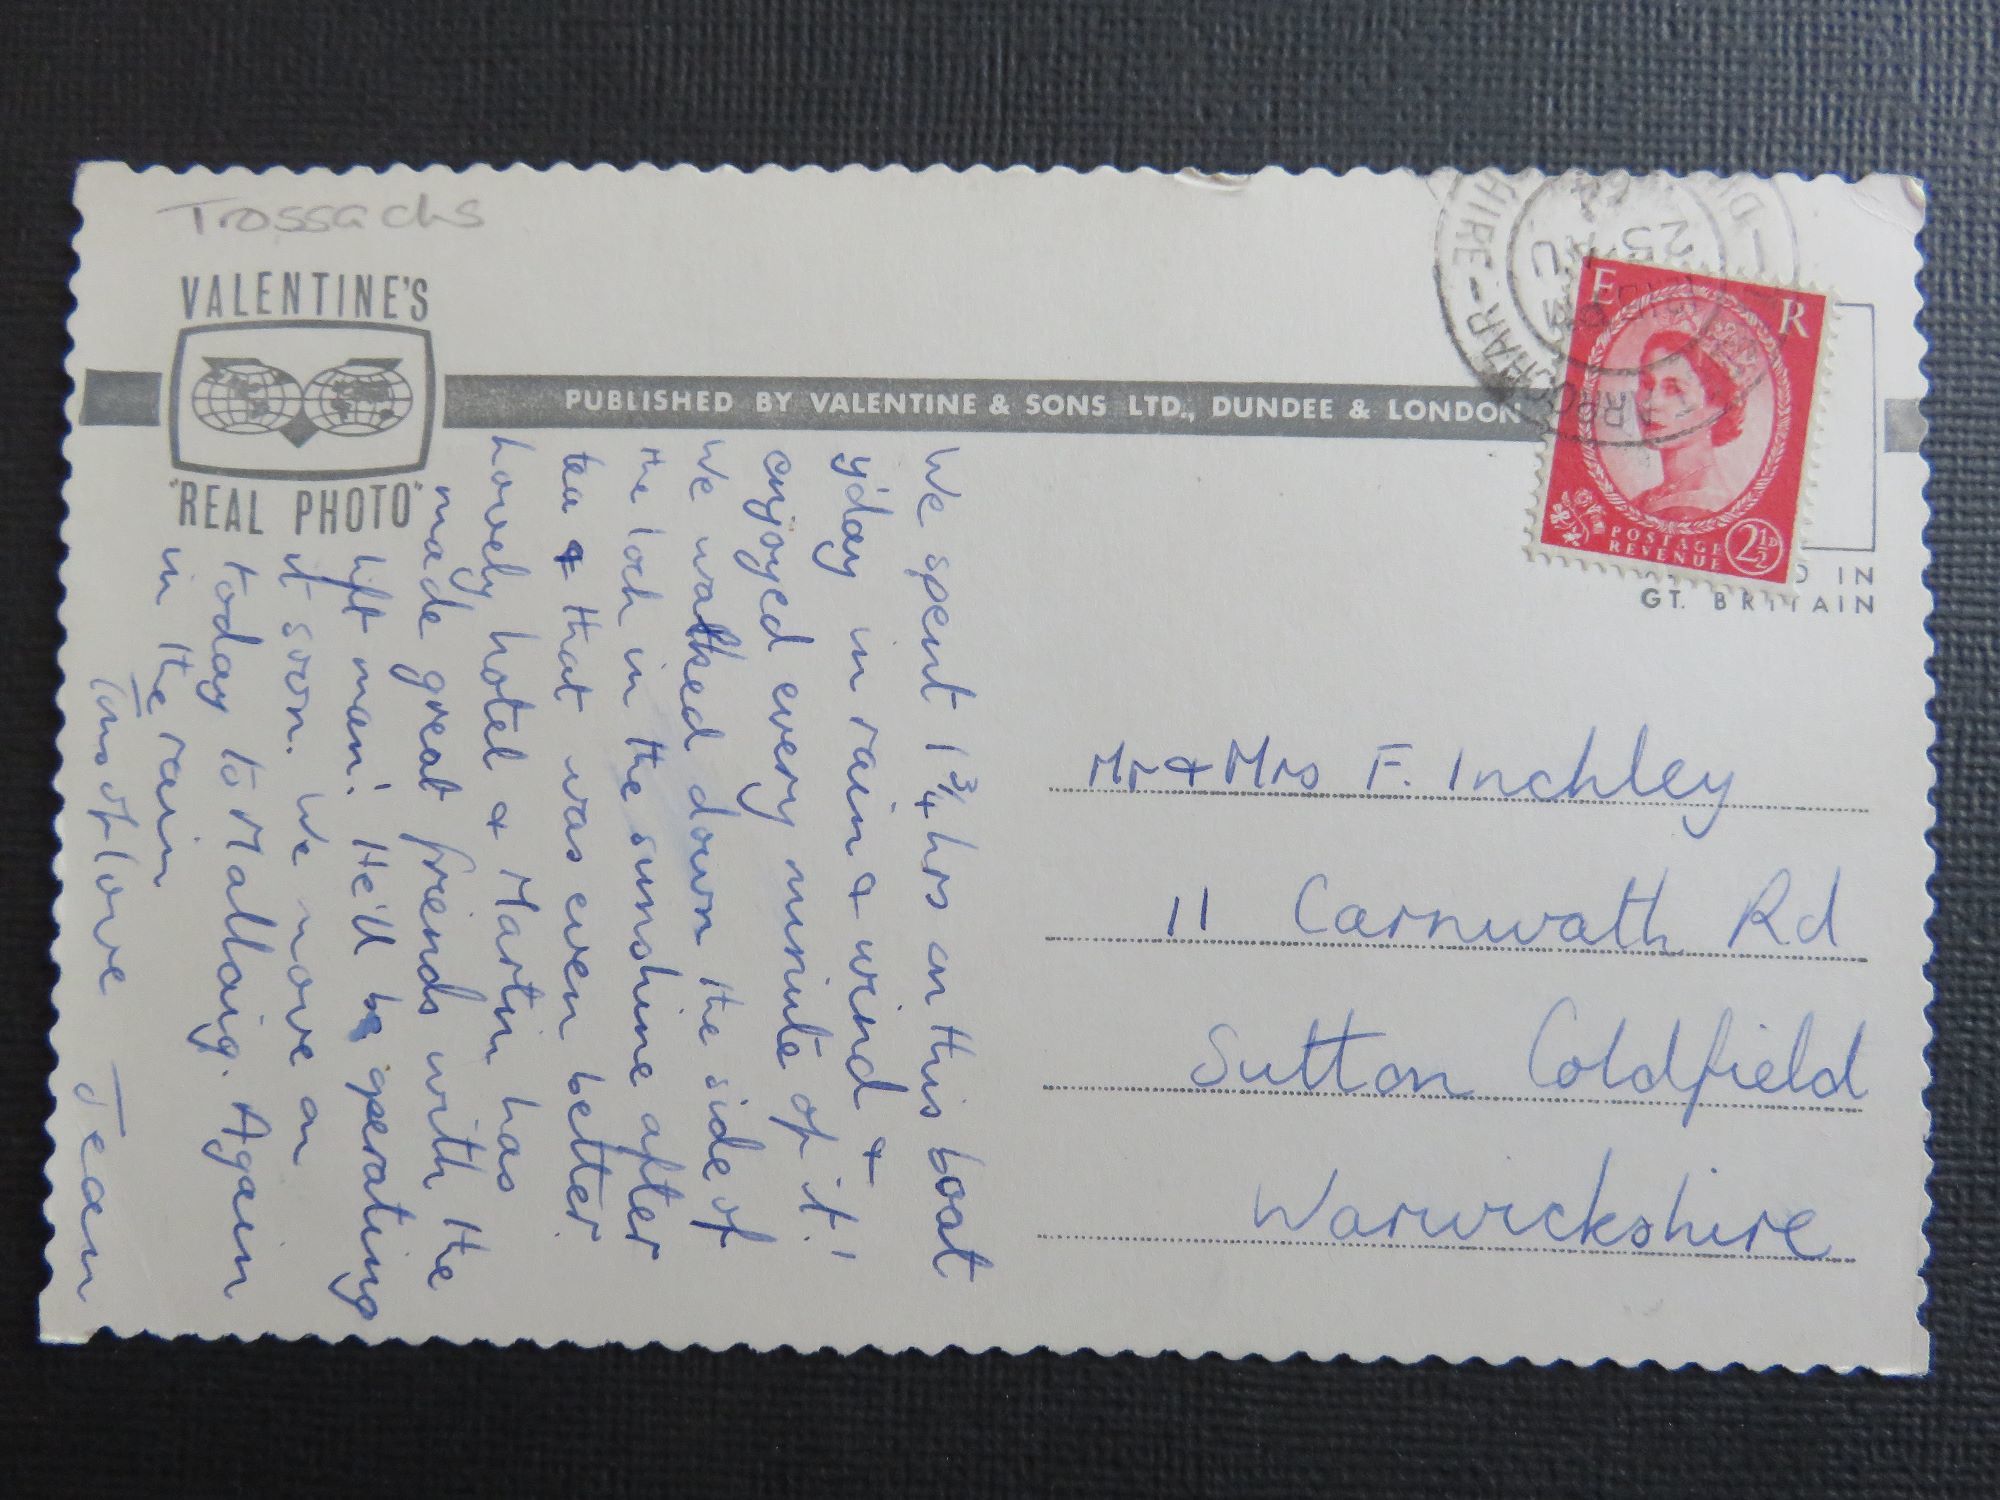 Trossachs
VALENTINE'S
"REAL PHOTO"
PUBLISHED BY VALENTINE & SONS LTD., DUNDEE & LONDON
We spent 1 3/4 hrs on this boat
y'day in rain & wind &
enjoyed every minute of it!
We walked down the side of
the loch in the sunshine after
tea & that was even better.
Lovely hotel & Martin has
made great friends with the
lift man! He'll be operating
it soon. We move on
today to Mallaig. Again
in the rain
Tons of love Jean
E R
POSTAGE
REVENUE
2½D
IN
GT. BRITAIN
Mr & Mrs F. Inchley
11 Carnwath Rd
Sutton Coldfield
Warwickshire